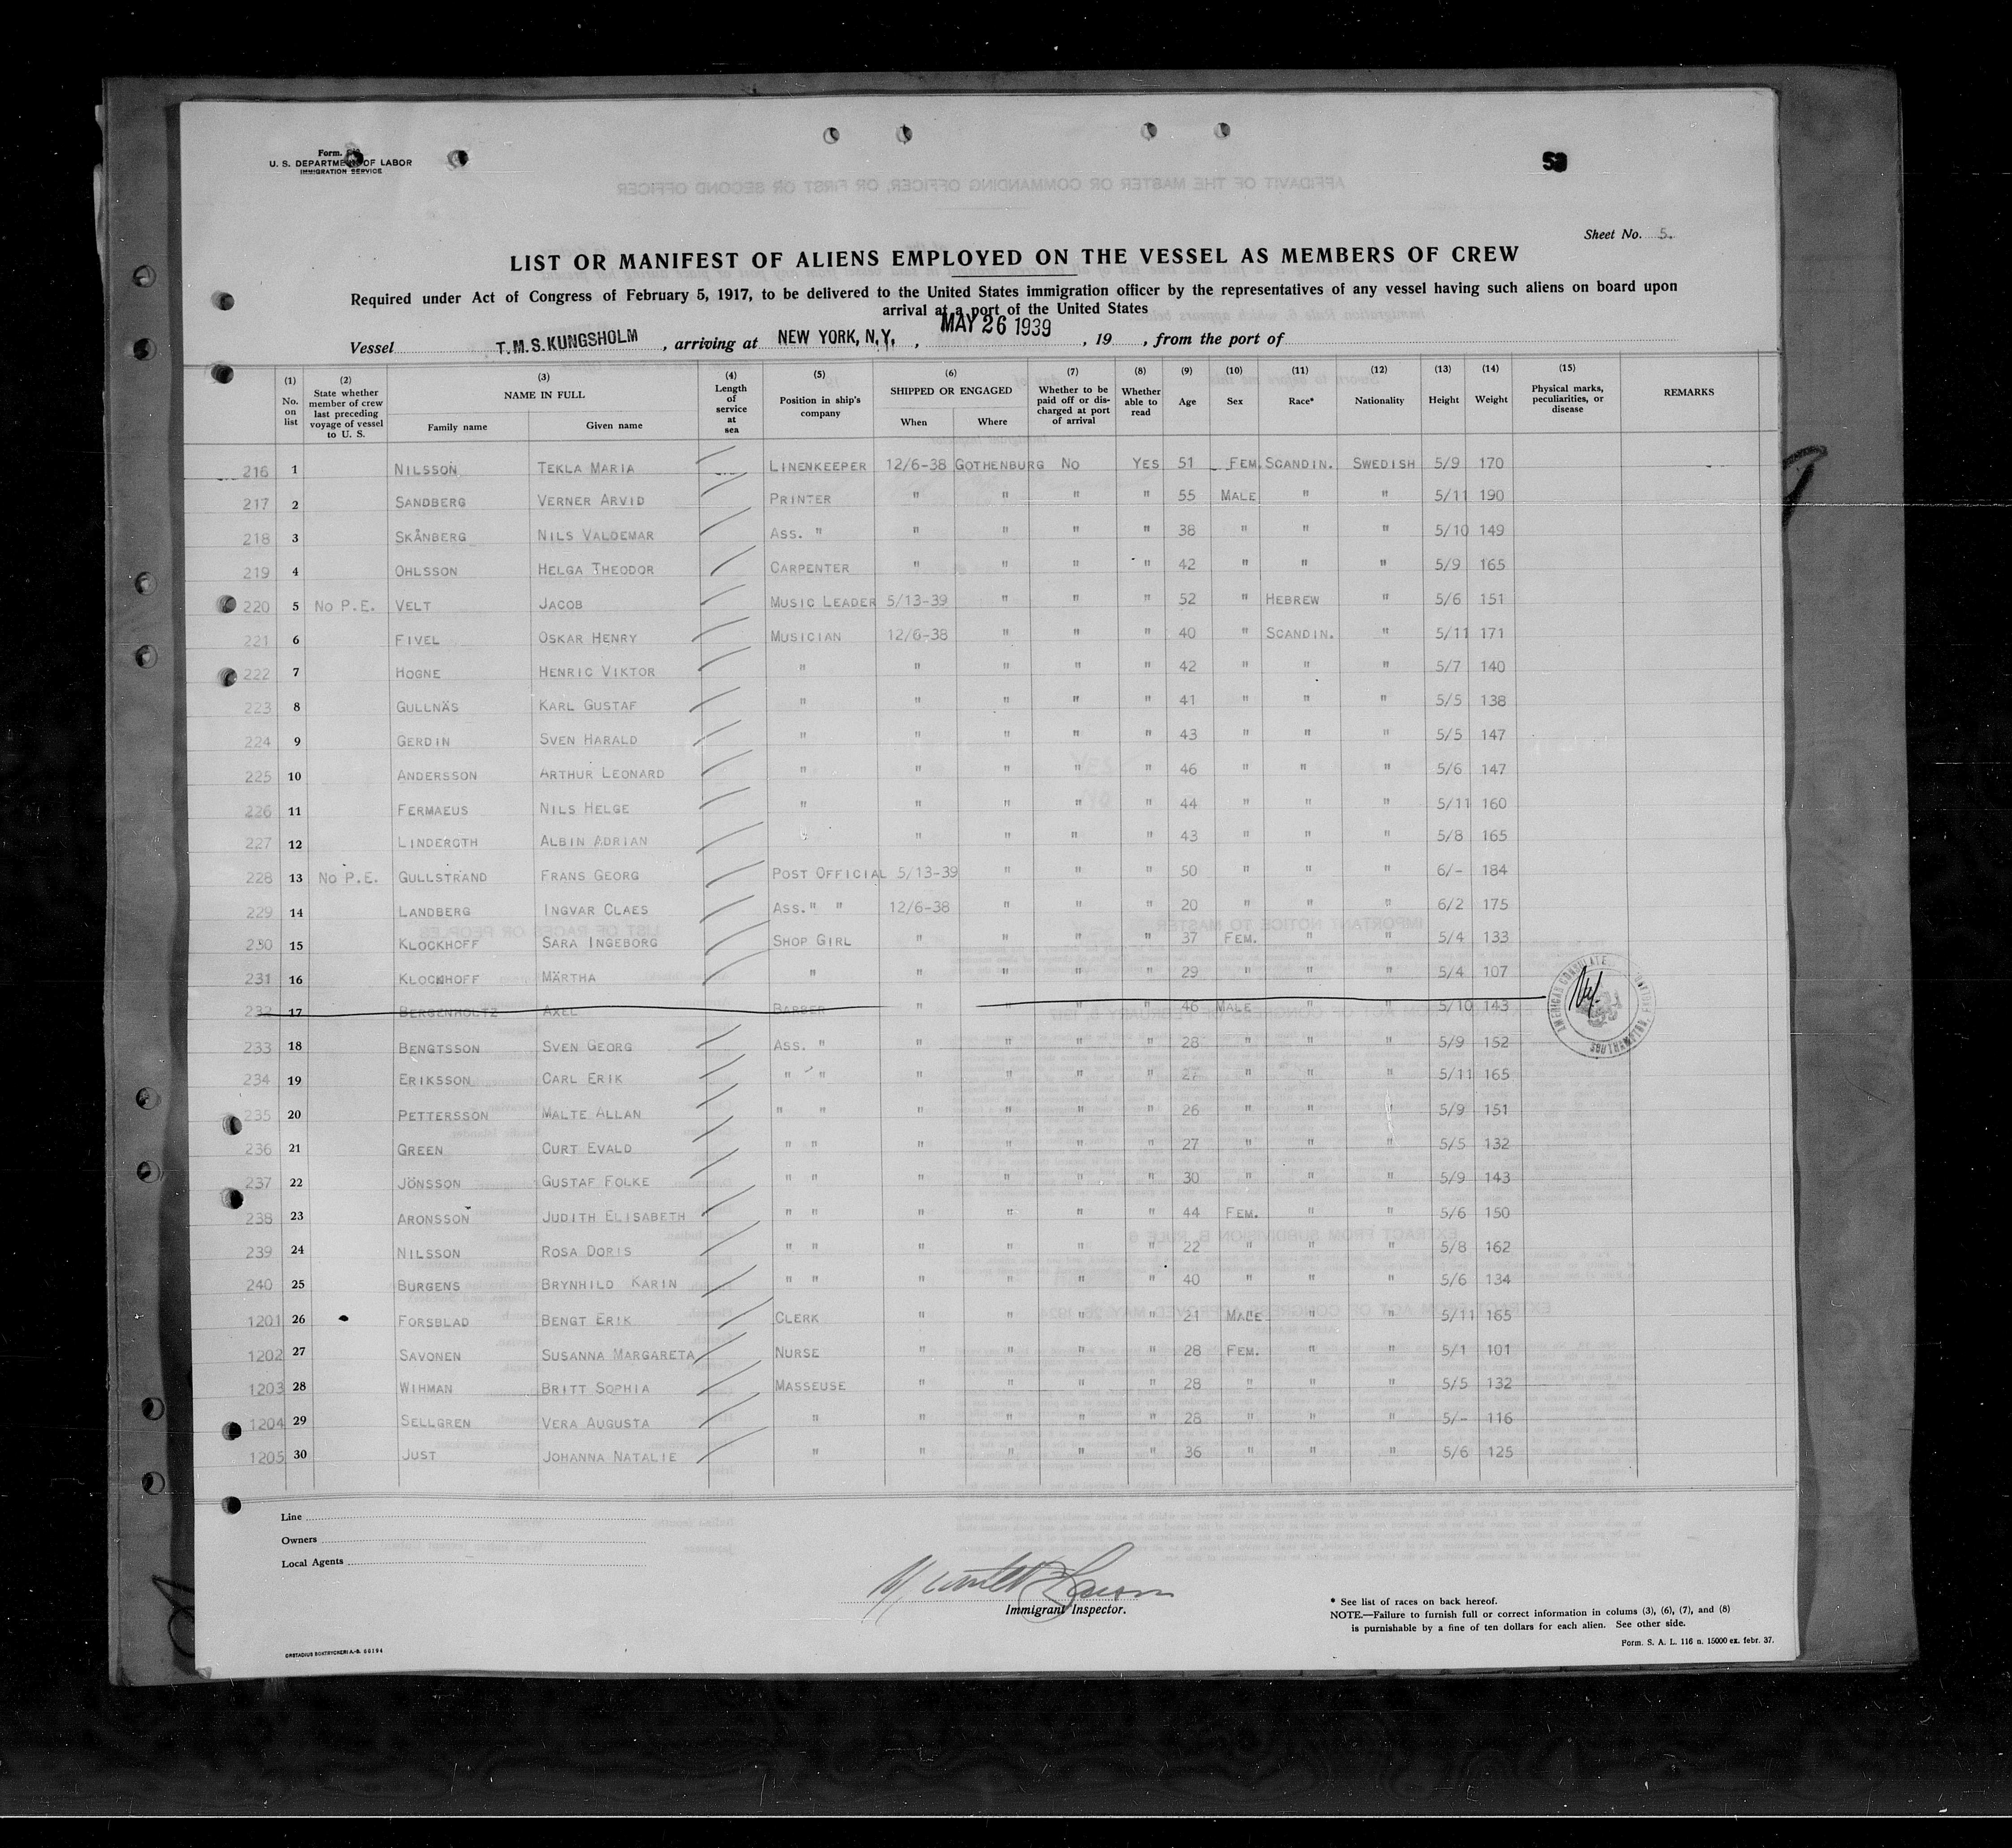 Form.
U. S. DEPARTMENT OF LABOR
IMMIGRATION SERVICE
Sheet No. 5.
LIST OR MANIFEST OF ALIENS EMPLOYED ON THE VESSEL AS MEMBERS OF CREW
Required under Act of Congress of February 5, 1917, to be delivered to the United States immigration officer by the representatives of any vessel having such aliens on board upon
arrival at a port of the United States
Vessel T.M.S. KUNGSHOLM , arriving at NEW YORK, N.Y. , MAY 26 1939 , 19 , from the port of
(1) No. on list (2) State whether member of crew last preceding voyage of vessel to U. S. (3) NAME IN FULL Family name Given name (4) Length of service at sea (5) Position in ship's company (6) SHIPPED OR ENGAGED When Where (7) Whether to be paid off or discharged at port of arrival (8) Whether able to read (9) Age (10) Sex (11) Race* (12) Nationality (13) Height (14) Weight (15) Physical marks, peculiarities, or disease REMARKS
216 1 NILSSON TEKLA MARIA LINENKEEPER 12/6-38 GOTHENBURG NO YES 51 FEM. SCANDIN. SWEDISH 5/9 170
217 2 SANDBERG VERNER ARVID PRINTER " " " " 55 MALE " " 5/11 190
218 3 SKÅNBERG NILS VALDEMAR ASS. " " " " " 38 " " " 5/10 149
219 4 OHLSSON HELGA THEODOR CARPENTER " " " " 42 " " " 5/9 165
220 5 NO P.E. VELT JACOB MUSIC LEADER 5/13-39 " " " 52 " HEBREW " 5/6 151
221 6 FIVEL OSKAR HENRY MUSICIAN 12/6-38 " " " 40 " SCANDIN. " 5/11 171
222 7 HOGNE HENRIC VIKTOR " " " " " 42 " " " 5/7 140
223 8 GULLNÄS KARL GUSTAF " " " " " 41 " " " 5/5 138
224 9 GERDIN SVEN HARALD " " " " " 43 " " " 5/5 147
225 10 ANDERSSON ARTHUR LEONARD " " " " " 46 " " " 5/6 147
226 11 FERMAEUS NILS HELGE " " " " " 44 " " " 5/11 160
227 12 LINDEROTH ALBIN ADRIAN " " " " " 43 " " " 5/8 165
228 13 NO P.E. GULLSTRAND FRANS GEORG POST OFFICIAL 5/13-39 " " " 50 " " " 6/- 184
229 14 LANDBERG INGVAR CLAES ASS. " " 12/6-38 " " " 20 " " " 6/2 175
230 15 KLOCKHOFF SARA INGEBORG SHOP GIRL " " " " 37 FEM. " " 5/4 133
231 16 KLOCKHOFF MÄRTHA " " " " " 29 " " " 5/4 107
232 17 BERGENHOLTZ AXEL BARBER " " " " 46 MALE " " 5/10 143
233 18 BENGTSSON SVEN GEORG ASS. " " " " " 28 " " " 5/9 152
234 19 ERIKSSON CARL ERIK " " " " " " 27 " " " 5/11 165
235 20 PETTERSSON MALTE ALLAN " " " " " " 26 " " " 5/9 151
236 21 GREEN CURT EVALD " " " " " " 27 " " " 5/5 132
237 22 JÖNSSON GUSTAF FOLKE " " " " " " 30 " " " 5/9 143
238 23 ARONSSON JUDITH ELISABETH " " " " " " 44 FEM. " " 5/6 150
239 24 NILSSON ROSA DORIS " " " " " " 22 " " " 5/8 162
240 25 BURGENS BRYNHILD KARIN " " " " " " 40 " " " 5/6 134
1201 26 FORSBLAD BENGT ERIK CLERK " " " " 21 MALE " " 5/11 165
1202 27 SAVONEN SUSANNA MARGARETA NURSE " " " " 28 FEM. " " 5/1 101
1203 28 WIHMAN BRITT SOPHIA MASSEUSE " " " " 28 " " " 5/5 132
1204 29 SELLGREN VERA AUGUSTA " " " " " 28 " " " 5/- 116
1205 30 JUST JOHANNA NATALIE " " " " " 36 " " " 5/6 125
AMERICAN CONSULATE
Line
Owners
Local Agents
Immigrant Inspector.
* See list of races on back hereof.
NOTE.—Failure to furnish full or correct information in colums (3), (6), (7), and (8)
is purnishable by a fine of ten dollars for each alien. See other side.
Form. S. A. L. 116 n. 15000 ex. febr. 37.